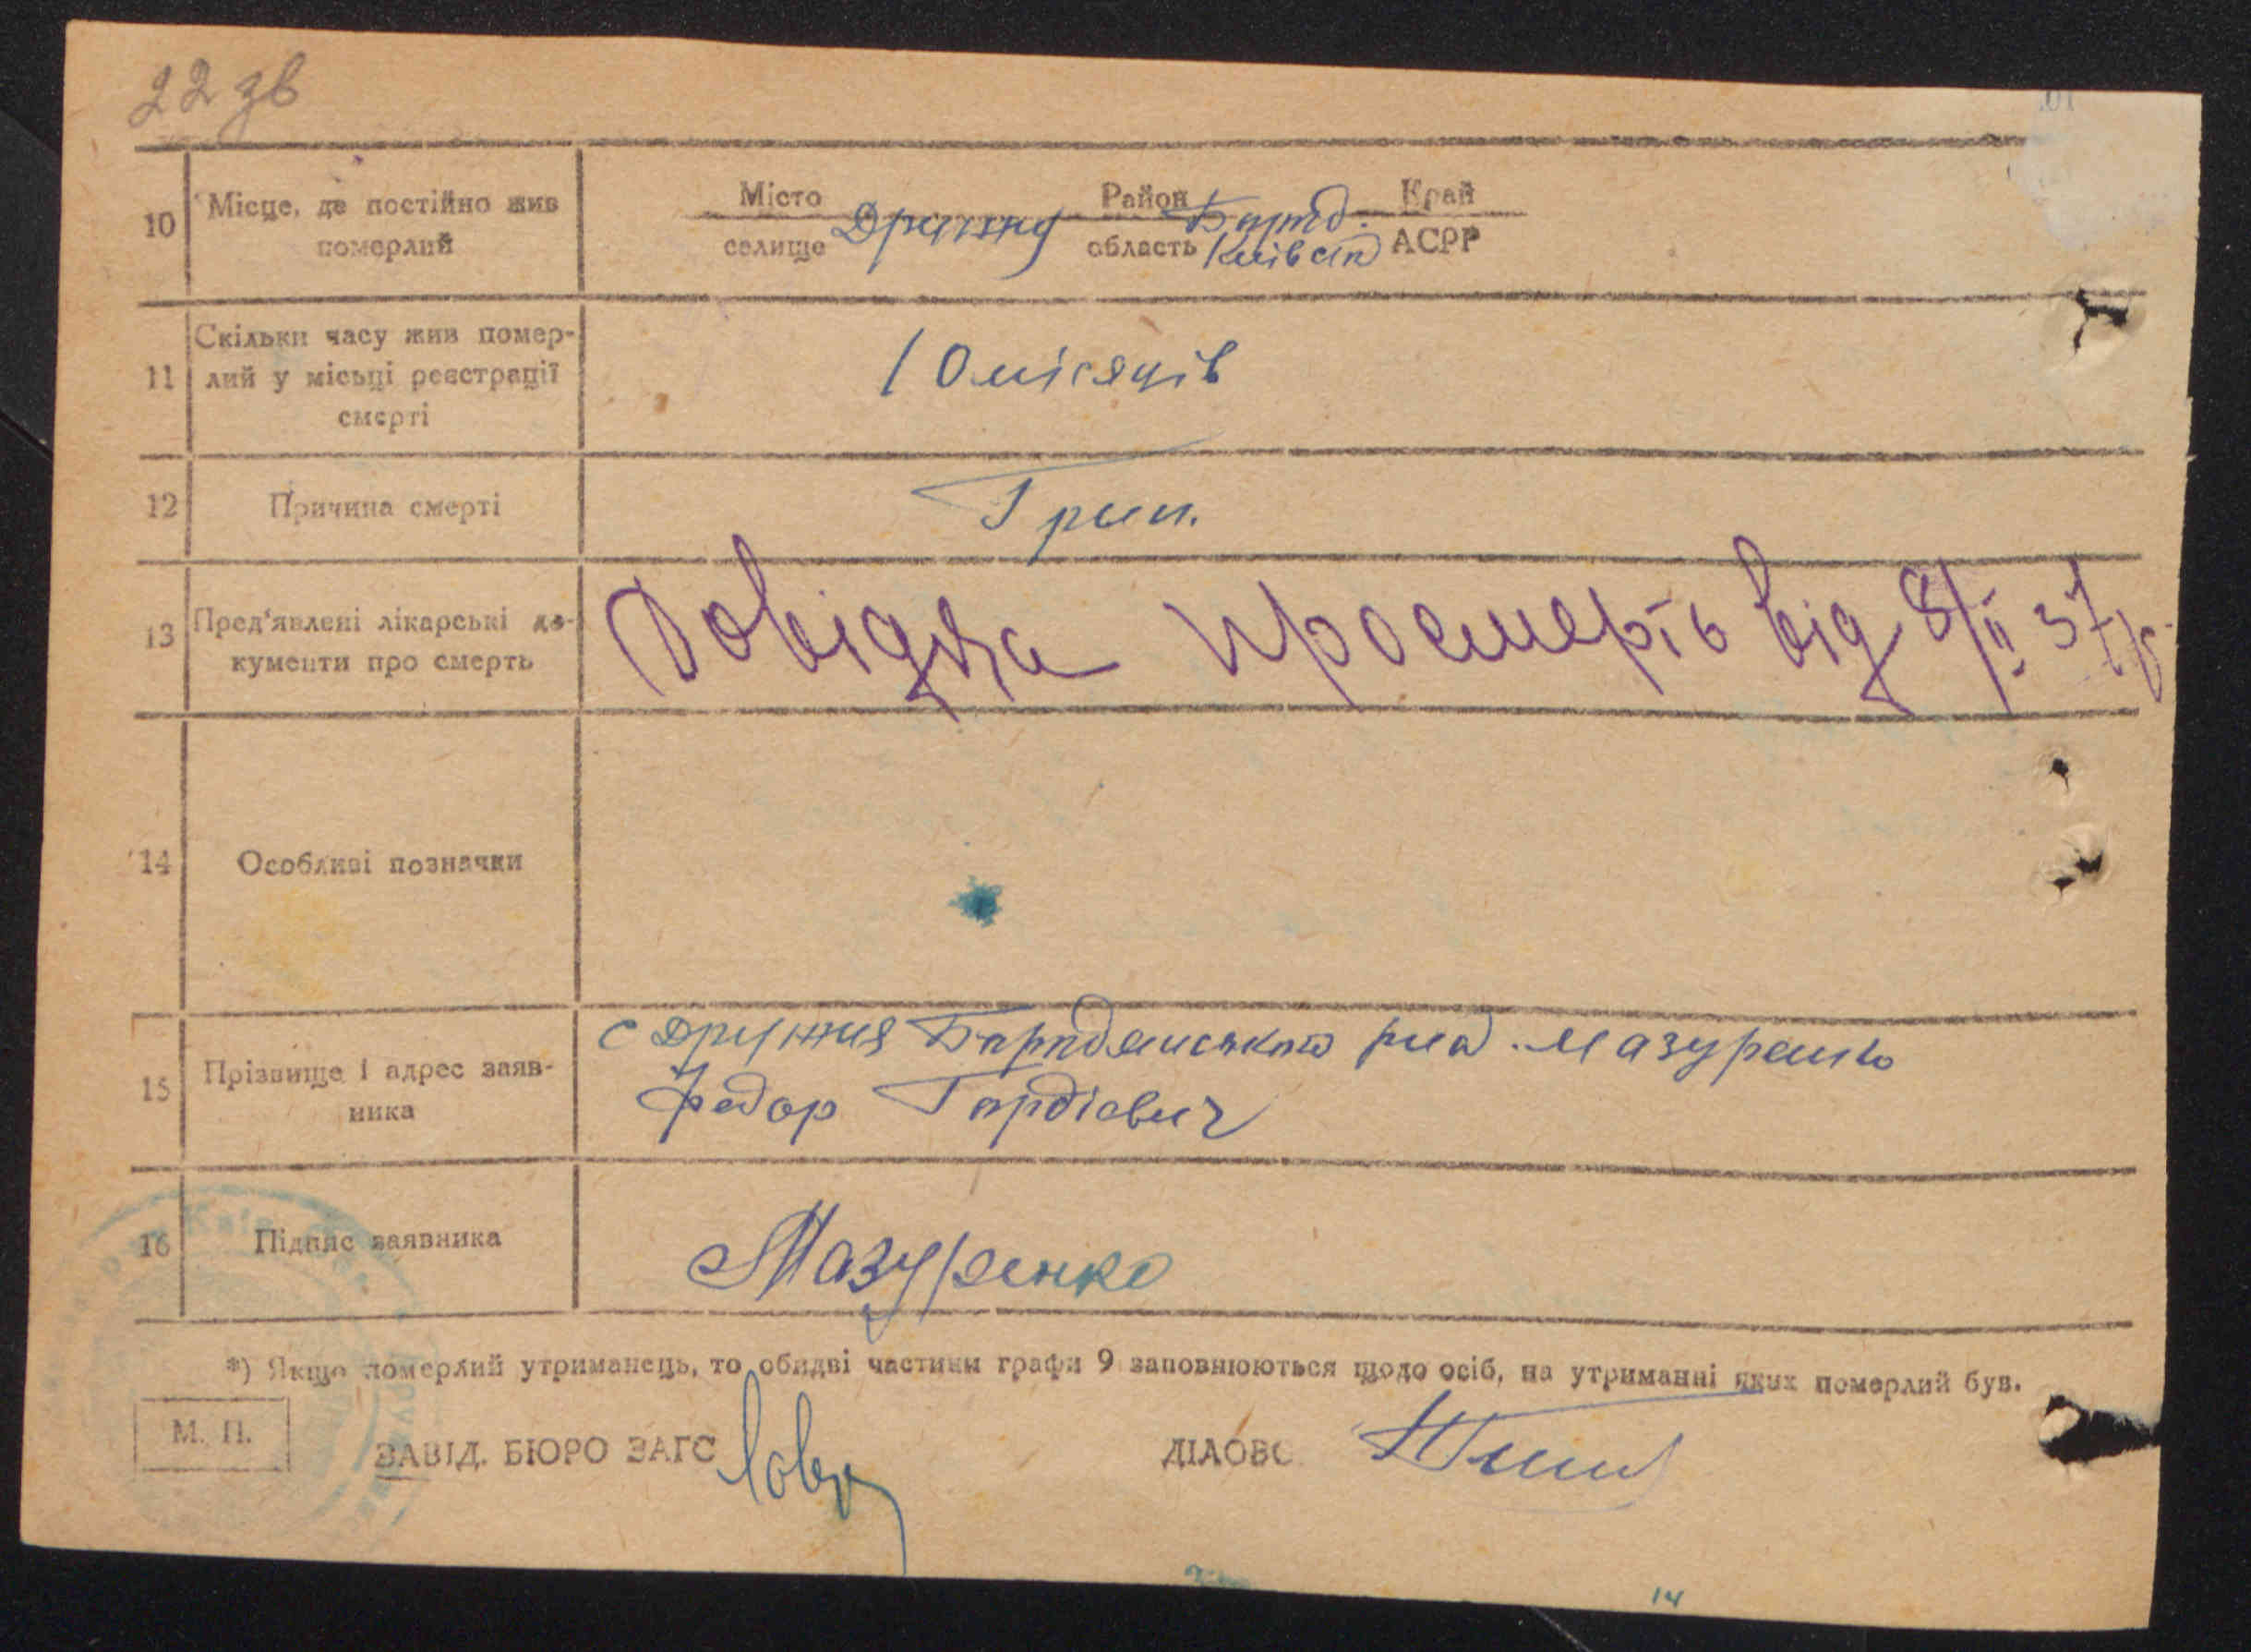 22 зв
10 Місце, де постійно жив померлий
Місто Район Край
селище Дружня Бород.
область Київськ АСРР
11 Скільки часу жив помер-
лий у місьці реєстрації
смерті
10 місяців
12 Причина смерті
Грип.
13 Пред'явлені лікарські до-
кументи про смерть
Довідка про смерть від 8/II 37 р.
14 Особливі позначки
15 Прізвище і адрес заяв-
ника
с Дружня Бородянського рна. Мазуренко
Федор Гордієвич
16 Підпис заявника
Мазуренко
*) Якщо померлий утриманець, то обидві частини графи 9 заповнюються щодо осіб, на утриманні яких померлий був.
М. П.
ЗАВІД. БЮРО ЗАГС
ДІЛОВС
14